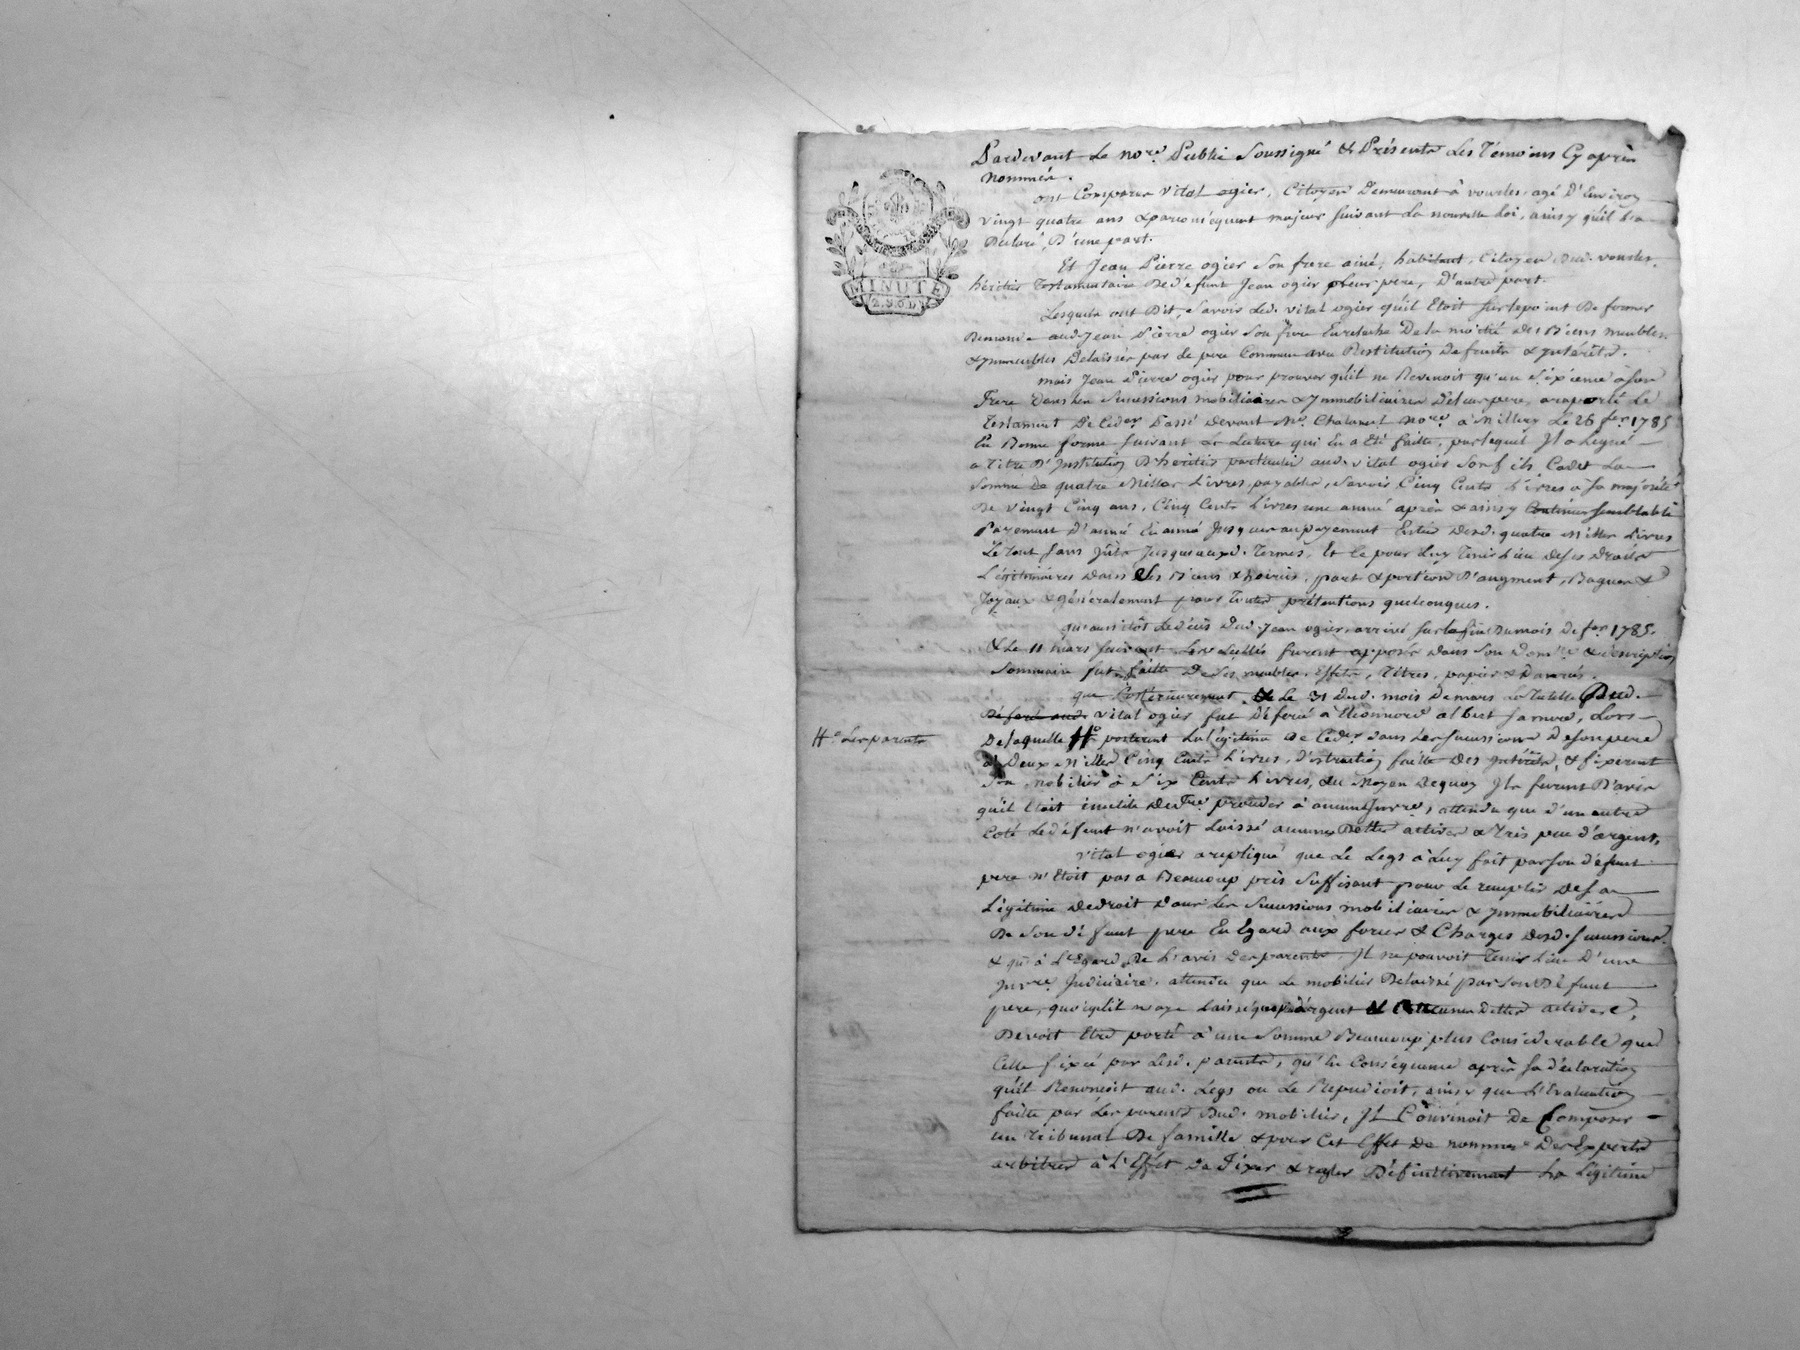 Pardevant Le no.re Public Soussigné & Présents Les Témoins Cy après
Nommés.
ont Comparu Vital ogier, Citoyen Demeurant à vourles, agé D'Environ
vingt quatre ans & parconséquent majeur suivant La nouvelle Loi, ainsy qu'il L'a
Declaré, D'une part.
Et Jean Pierre ogier Son frere ainé, habitant, Citoyen Dud. vourles,
héritier Testamentaire De défunt Jean ogier Leur pere, D'autre part.
Lesquels ont Dit, Savoir Led. vital ogier qu'il Etoit sur le point De former
Demande aud. Jean Pierre ogier Son frere En relache De la moitié des Biens meubles
& ymmeubles Delaissés par Le pere Commun avec Restitution de fruits & ynterêts.
mais Jean Pierre ogier pour prouver qu'il ne Revenoit qu'un Sixieme à son
Frere Dans Les Successions mobiliaires & Ymmobiliaires De Leur pere, a raporté Le
Testament De Ceder Passé Devant Me. Chatanel No.re à Millery Le 26 fer. 1785
En Bonne forme suivant La Lecture qui En a Eté faitte, par lequel Il a Legué
a Titre D'Institution D'heritier particulier aud. vital ogier Son fils Cadet La
Somme de quatre Milles Livres, payables, Savoir Cinq Cents Livres a Sa majorité
De vingt Cinq ans, Cinq Cents Livres une année après & ainsy Continuer semblable
Payement D'année En année Jusques au payement Entier Desd. quatre Milles Livres
Le tout Sans yntts Jusques auxd. Termes, Et Ce pour Luy Tenir Lieu de ses Droits
Légitimaires Dans Ses Biens & hoiries, part & portion D'augment, Bagues &
Joyaux & généralement pour Toutes prétentions quelconques.
qu'aussitôt Le décès Dud. Jean ogier, arrivé sur La fin Du mois De fer. 1785.
& Le 11 mars suivant Les Scellés furent apposés dans Son Domlle & description
Sommaire fut faitte De Ses meubles, Effets, Titres, papiers & Danrées.
que Postérieurement Le 31 Dud. mois De mars La Tutelle Dud.
Déféré aud. vital ogier fut Déféré à Eléonnore albert Sa mere, Lors
De laquelle # porterent La légitime de Ceder dans Les Successions De son pere
#.e Les parents
à Deux Milles Cinq Cents Livres, Distraction faitte Des yntérêts, & fixerent
Son mobilier à Six Cents Livres, au Moyen De quoy Ils furent D'avis
qu'il Etoit inutile de procéder à aucun Invre, attendu que d'un autre
Coté Le défunt n'avoit Laissé aucunes Dettes actives & Très peu d'argent,
vital ogier a repliqué que Le Legs à Luy fait par son défunt
pere n'Etoit pas a Beaucoup près Suffisant pour Le remplir De sa
Légitime De droit Dans Les Successions mobiliaires & ymmobiliaires
De Son défunt pere Eu Egard aux forces & Charges Desd. Successions
& qu'à L'Egard De L'avis Des parents, Il ne pouvoit Tenir Lieu D'une
Invre. Judiciaire, attendu que Le mobilier Delaissé par Son Défunt
pere, quoiqu'il n'aye Laissé que peu d'argent & aucunes Dettes actives,
Devoit Etre porté à une Somme Beaucoup plus Considerable que
Celle fixée par Lesd. parents, qu'En Conséquence après Sa déclaration
qu'il Renoncoit aud. Legs ou Le Repudioit, ainsy que L'Evaluation
faitte par Les parents Dud. mobilier, Il Convenoit De Composer
un Tribunal De famille & pour Cet Effet De nommer Des Experts
arbitres à L'Effet De Fixer & regler Définitivement La Légitime
MINUTE